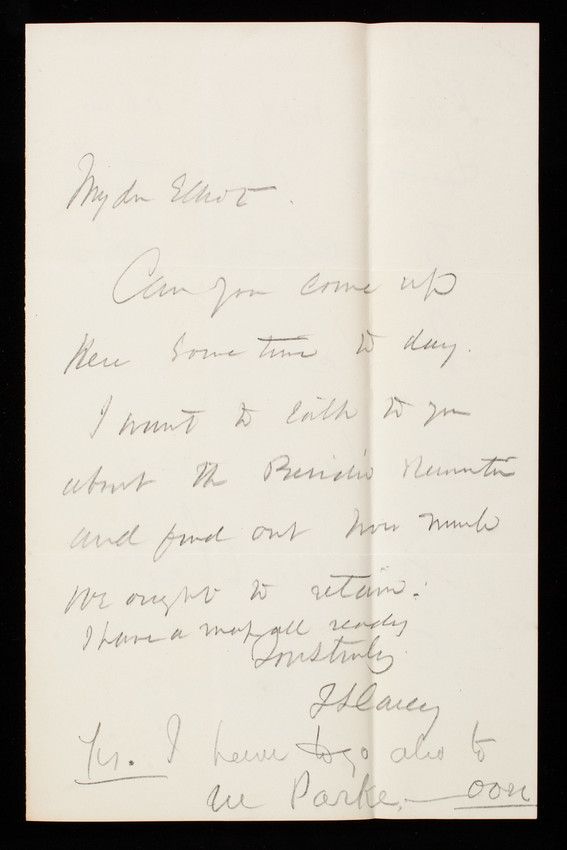 My dr Elliot.
Can you come up
here some time to day.
I want to talk to you
about the Presidio Reservation
and find out how much
we ought to retain.
I have a map all ready
Yours truly
T L Casey
Yes. I have to go also to
see Parke.